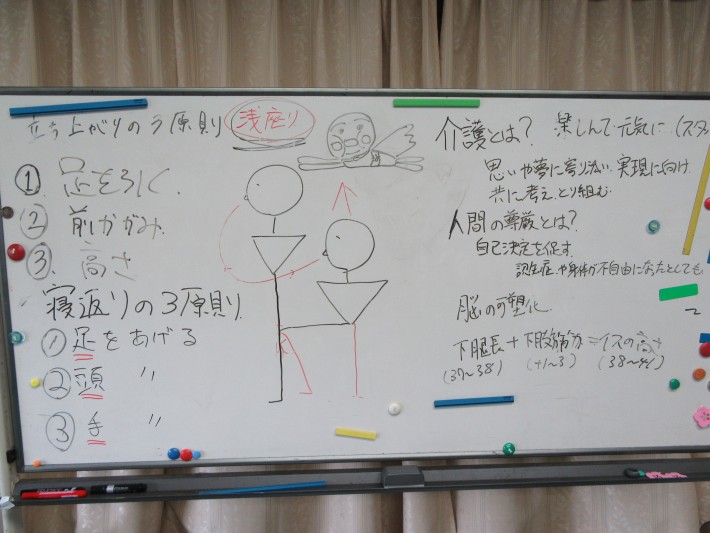 立ち上がりの3原則 浅座り
① 足を引く.
② 前かがみ
③. 高さ
寝返りの3原則.
① 足をあげる
② 頭 〃
③ 手 〃
介護とは? 楽しんで元気に.
思いや夢に寄り添い.実現に向け
共に考え.とり組む.
人間の尊厳とは?
自己決定を促す.
認知症や身体が不自由になったとしても
脳の可塑化
下腿長+ =イスの高さ
(37~38) (+1~3) (38~41)